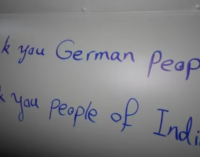 k you German peop
k you people of Indi